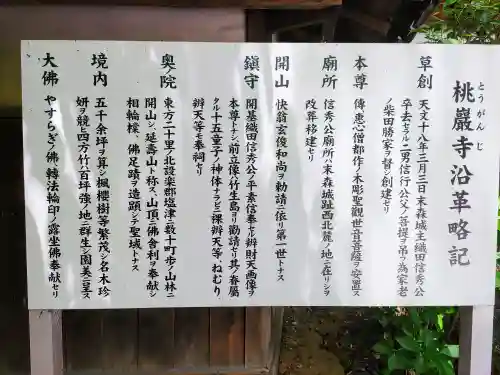 桃巖寺沿革略記
とうがんじ
草創
天文十八年三月三日末森城主織田信秀公
卒去セラル二男信行公父ノ菩提ヲ弔フ為家老
ノ柴田勝家ヲ督シ創建セリ
本尊
傳恵心僧都作ノ木彫聖觀世音菩薩ヲ安置ス
廟所
信秀公廟所ハ末森城趾西北麓ノ地ニ在リシヲ
改葬移建セリ
開山
快翁玄俊和尚ヲ勅請ニ依リ第一世トナス
鎮守
開基織田信秀公ノ平素信奉セラ辯財天画像ヲ
本尊トナシ前立像ハ竹生島ヨリ勸請セリ其ノ眷屬
タル十五童子ノ神体ナラビニ裸辯天等・ねむり
辯天等モ奉祠セリ
奥院
東方二十里ノ北設楽郡塩津ニ数十町歩ノ山林ニ
開山シ延壽山ト称ス山頂ニ佛舎利ヲ奉献シ
相輪樣、佛足蹟ヲ造顕シテ聖域トナス
境内
五千余坪ヲ算シ楓櫻樹等繁茂シ名木珍
妍ヲ競ヒ四方竹八百坪強ノ地ニ群生シ園美ニ呈ス
大佛
やすらぎノ佛・轉法輪印ノ露坐佛奉献セリ